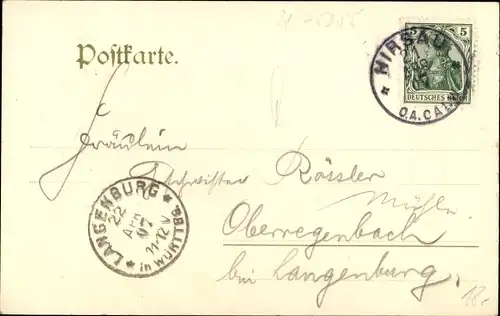 Postkarte.
5
DEUTSCHES REICH
HIRSAU
O.A. CALW
Fräulein
Geschwister Rössler
Mühle
Oberregenbach
bei Langenburg.
LANGENBURG
22 APR 07
11-12 V
in WÜRTTBG.
18.-